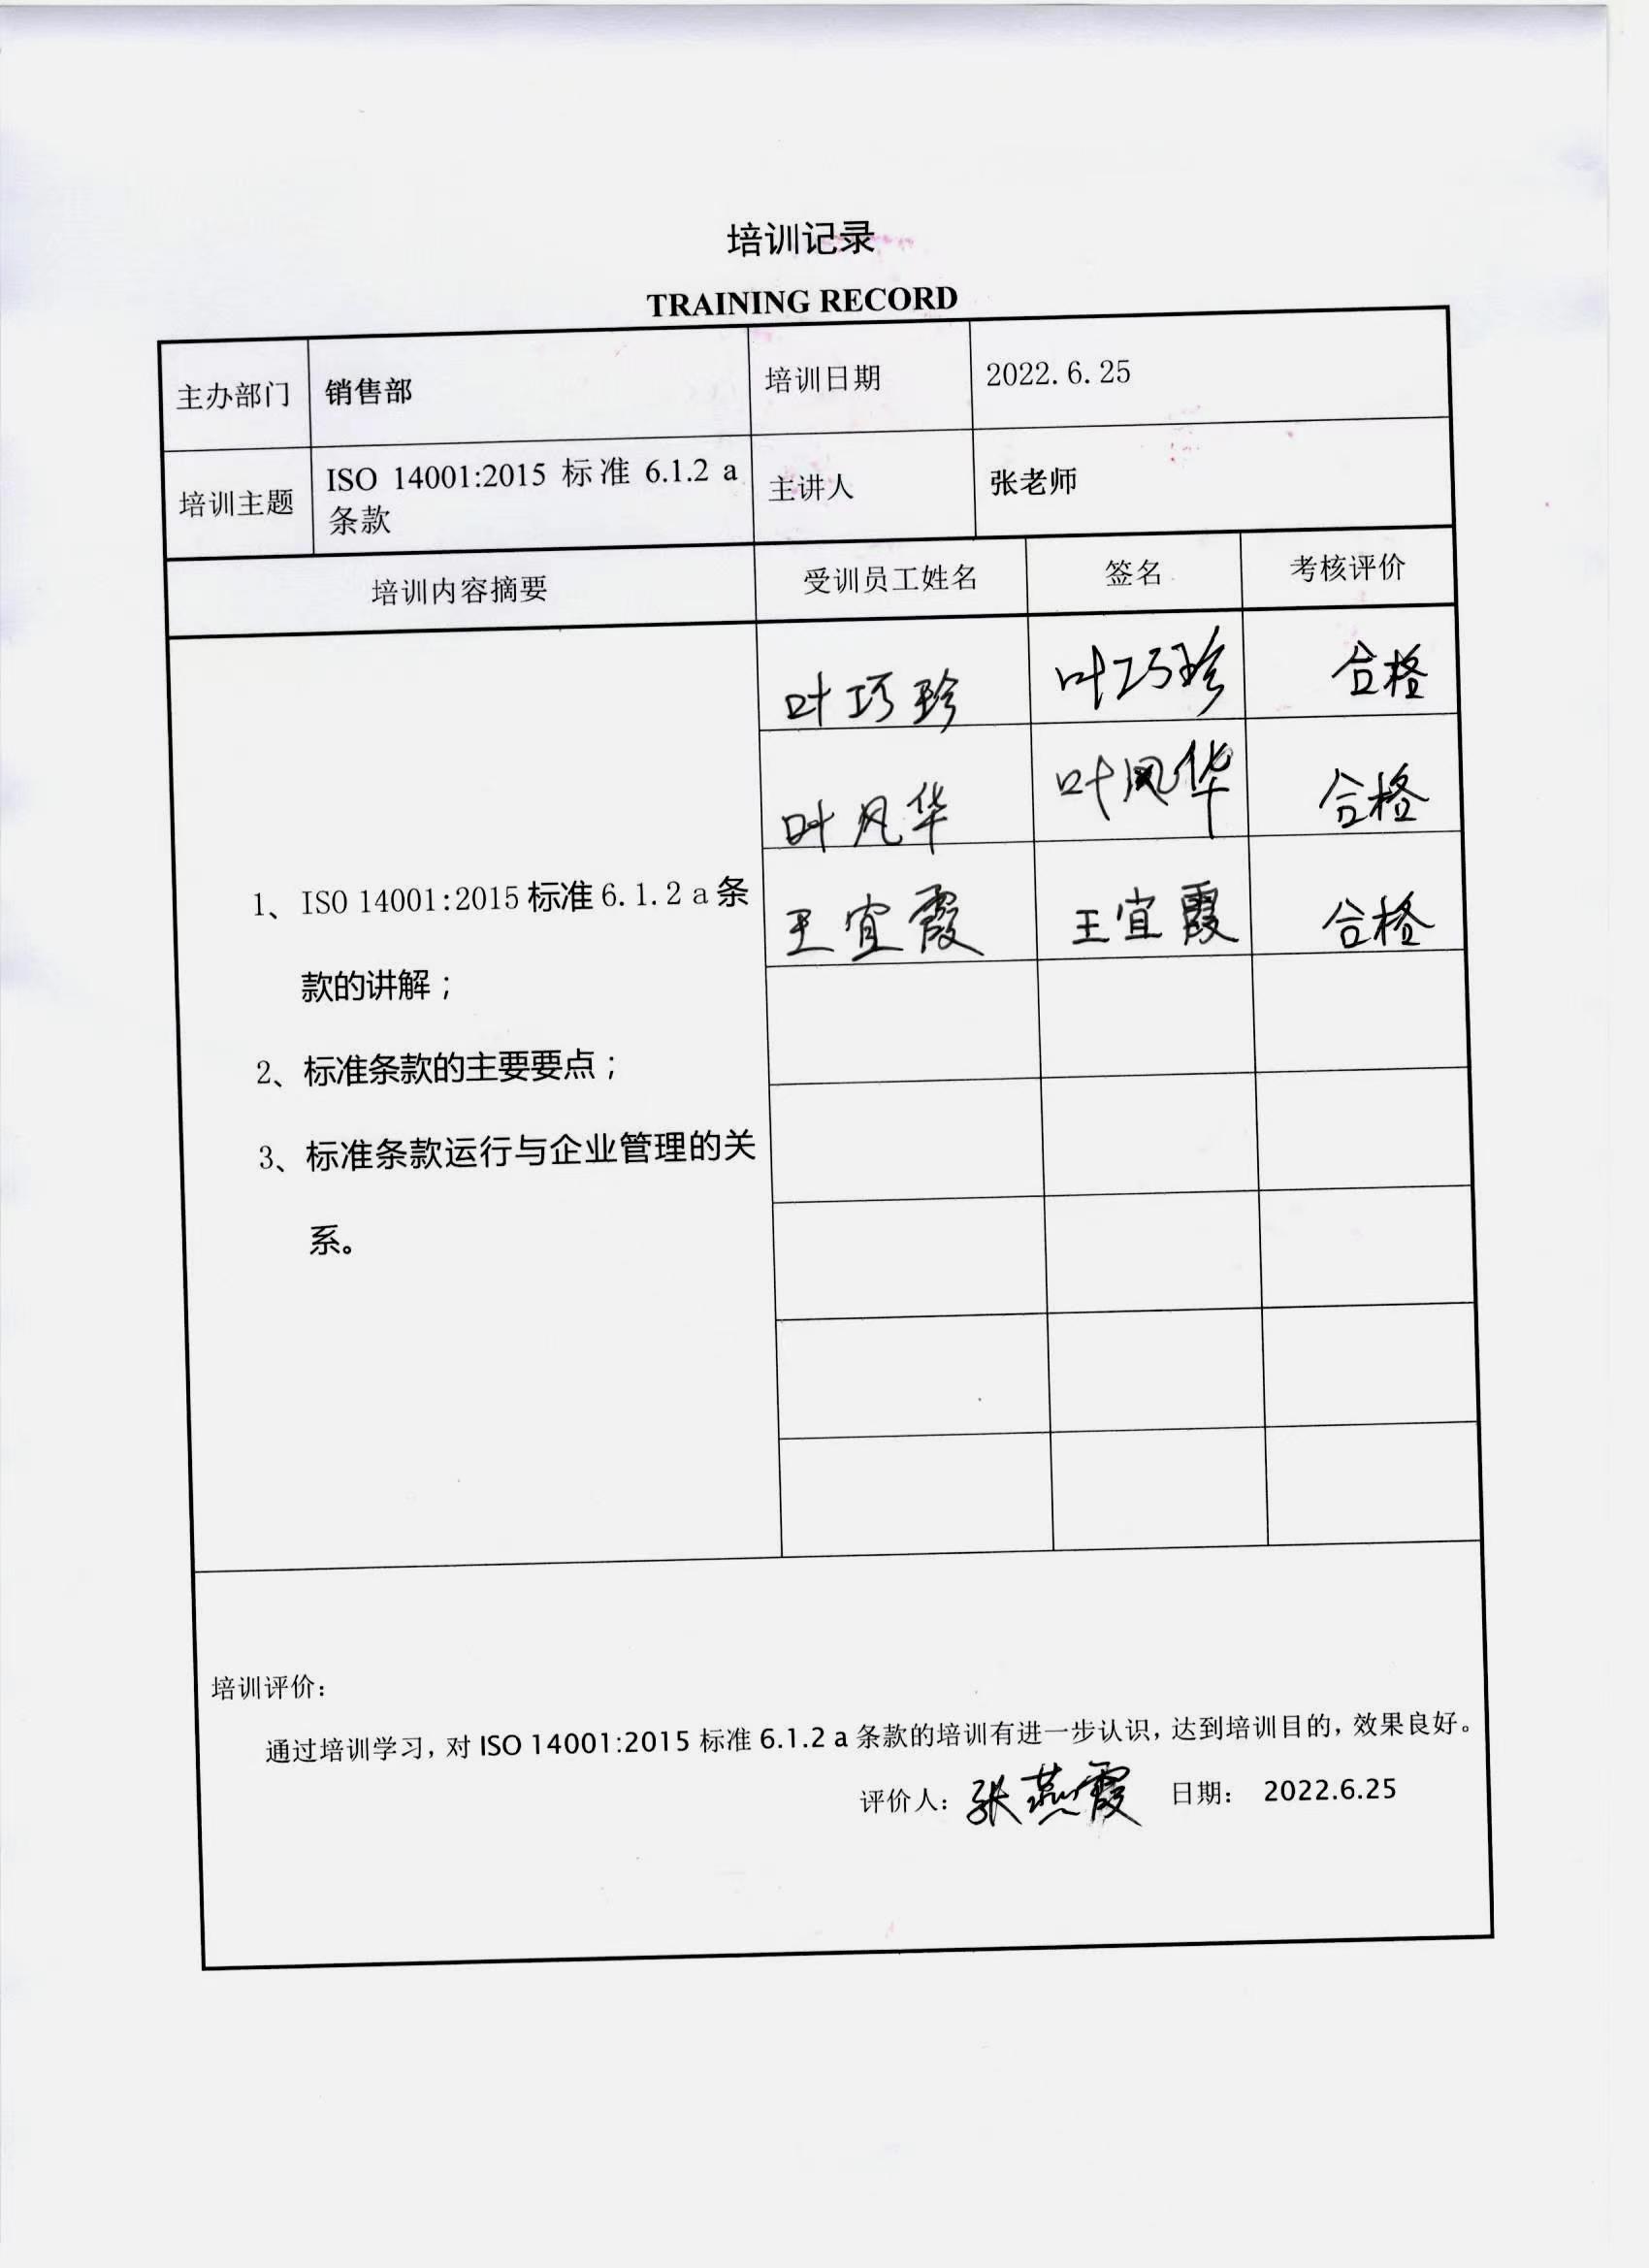 培训记录
TRAINING RECORD
主办部门 销售部 培训日期 2022.6.25
培训主题 ISO 14001:2015 标准 6.1.2 a 条款 主讲人 张老师
培训内容摘要 受训员工姓名 签名 考核评价
叶巧珍 叶巧珍 合格
叶风华 叶风华 合格
王宜霞 王宜霞 合格
1、ISO 14001:2015 标准 6.1.2 a 条
款的讲解；
2、标准条款的主要要点；
3、标准条款运行与企业管理的关
系。
培训评价：
通过培训学习，对 ISO 14001:2015 标准 6.1.2 a 条款的培训有进一步认识，达到培训目的，效果良好。
评价人：张燕霞 日期： 2022.6.25